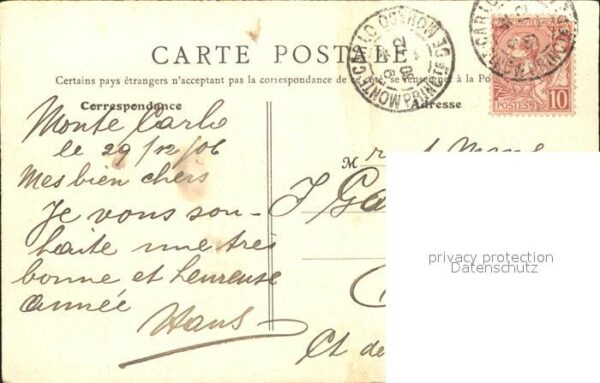 CARTE POSTALE
Certains pays étrangers n'acceptant pas la correspondance de ce côté, se renseigner à la Po
Correspondance
Adresse
Monte Carlo
le 29/12/06
Mes bien chers
Je vous sou-
haite une très
bonne et heureuse
année
Hans
M
J
Ct de
MONTE-CARLO
PRINCIPAUTÉ DE MONACO
POSTES
10
privacy protection
Datenschutz